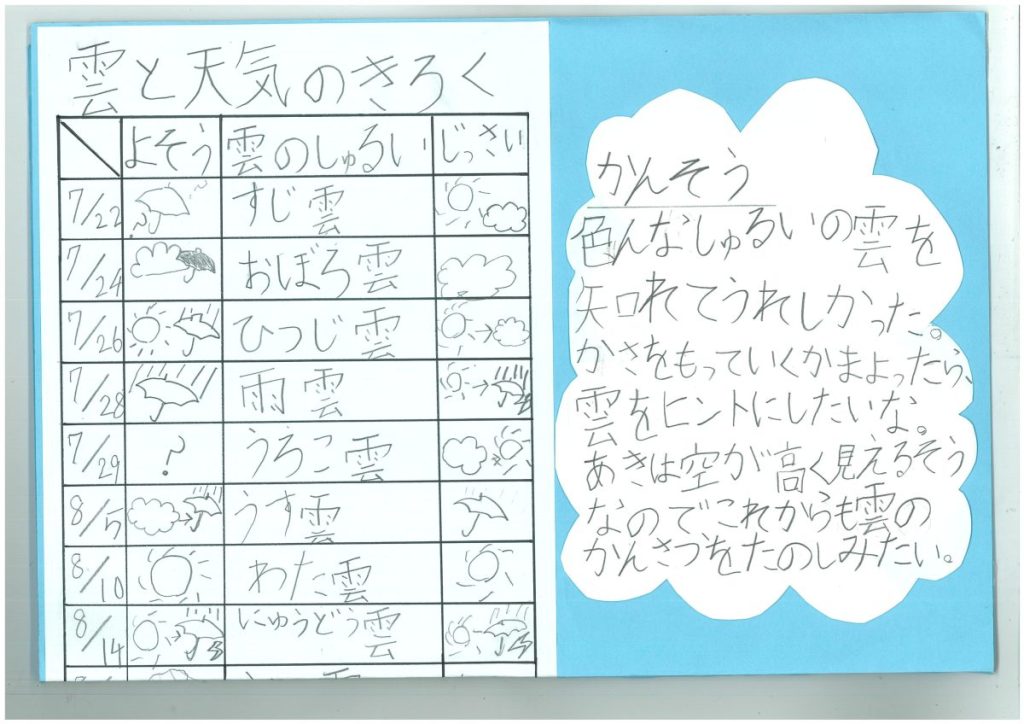 雲と天気のきろく
よそう 雲のしゅるい じっさい
7/22 すじ雲
7/24 おぼろ雲
7/26 ひつじ雲
7/28 雨雲
7/29 ? うろこ雲
8/5 うす雲
8/10 わた雲
8/14 にゅうどう雲
かんそう
色んなしゅるいの雲を
知れてうれしかった。
かさをもっていくかまよったら、
雲をヒントにしたいな。
あきは空が高く見えるそう
なのでこれからも雲の
かんさつをたのしみたい。